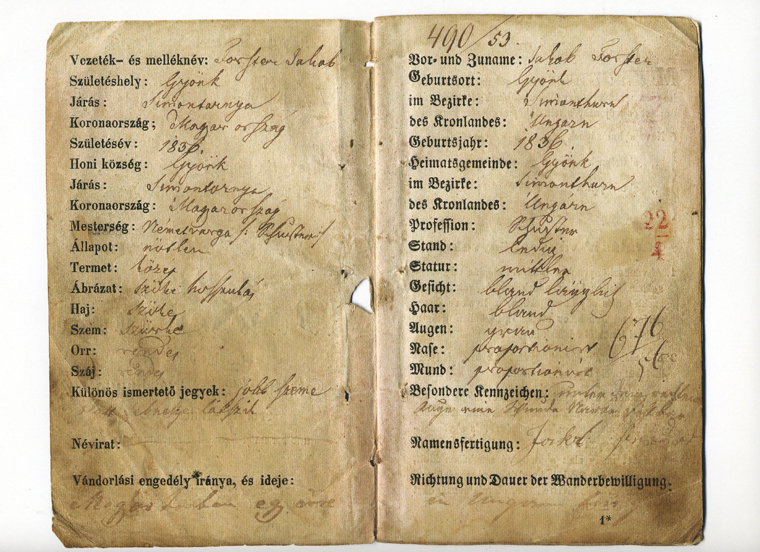 Vezeték- és melléknév: Forster Jakab
Születéshely: Gyönk
Járás: Simontornya
Koronaország; Magyarország
Születésév: 1836.
Honi község: Gyönk
Járás: Simontornya
Koronaország: Magyarország
Mesterség: Németvarga /: Schuster :/
Állapot: nőtlen
Termet: közep
Ábrázat: szőke hosszukás
Haj: szőke
Szem: szürke
Orr: rendes
Száj: rendes
Különös ismertető jegyek: jobb szeme
látszik
Névirat:
Vándorlási engedély iránya, és ideje:
egy évre
490/53.
Vor- und Zuname: Jakob Forster
Geburtsort: Gyönk
im Bezirke: Simonthurn
des Kronlandes: Ungarn
Geburtsjahr: 1836.
Heimatsgemeinde: Gyönk
im Bezirke: Simonthurn
des Kronlandes: Ungarn
Profession: Schuster
Stand: ledig
Statur: mittlere
Gesicht: bland länglich
Haar: bland
Augen: grau
Nase: proportionirt
Mund: proportionirt
Besondere Kennzeichen: unter dem rechten
Auge eine
Namensfertigung:
Richtung und Dauer der Wanderbewilligung:
in Ungarn
22
676
56
1*